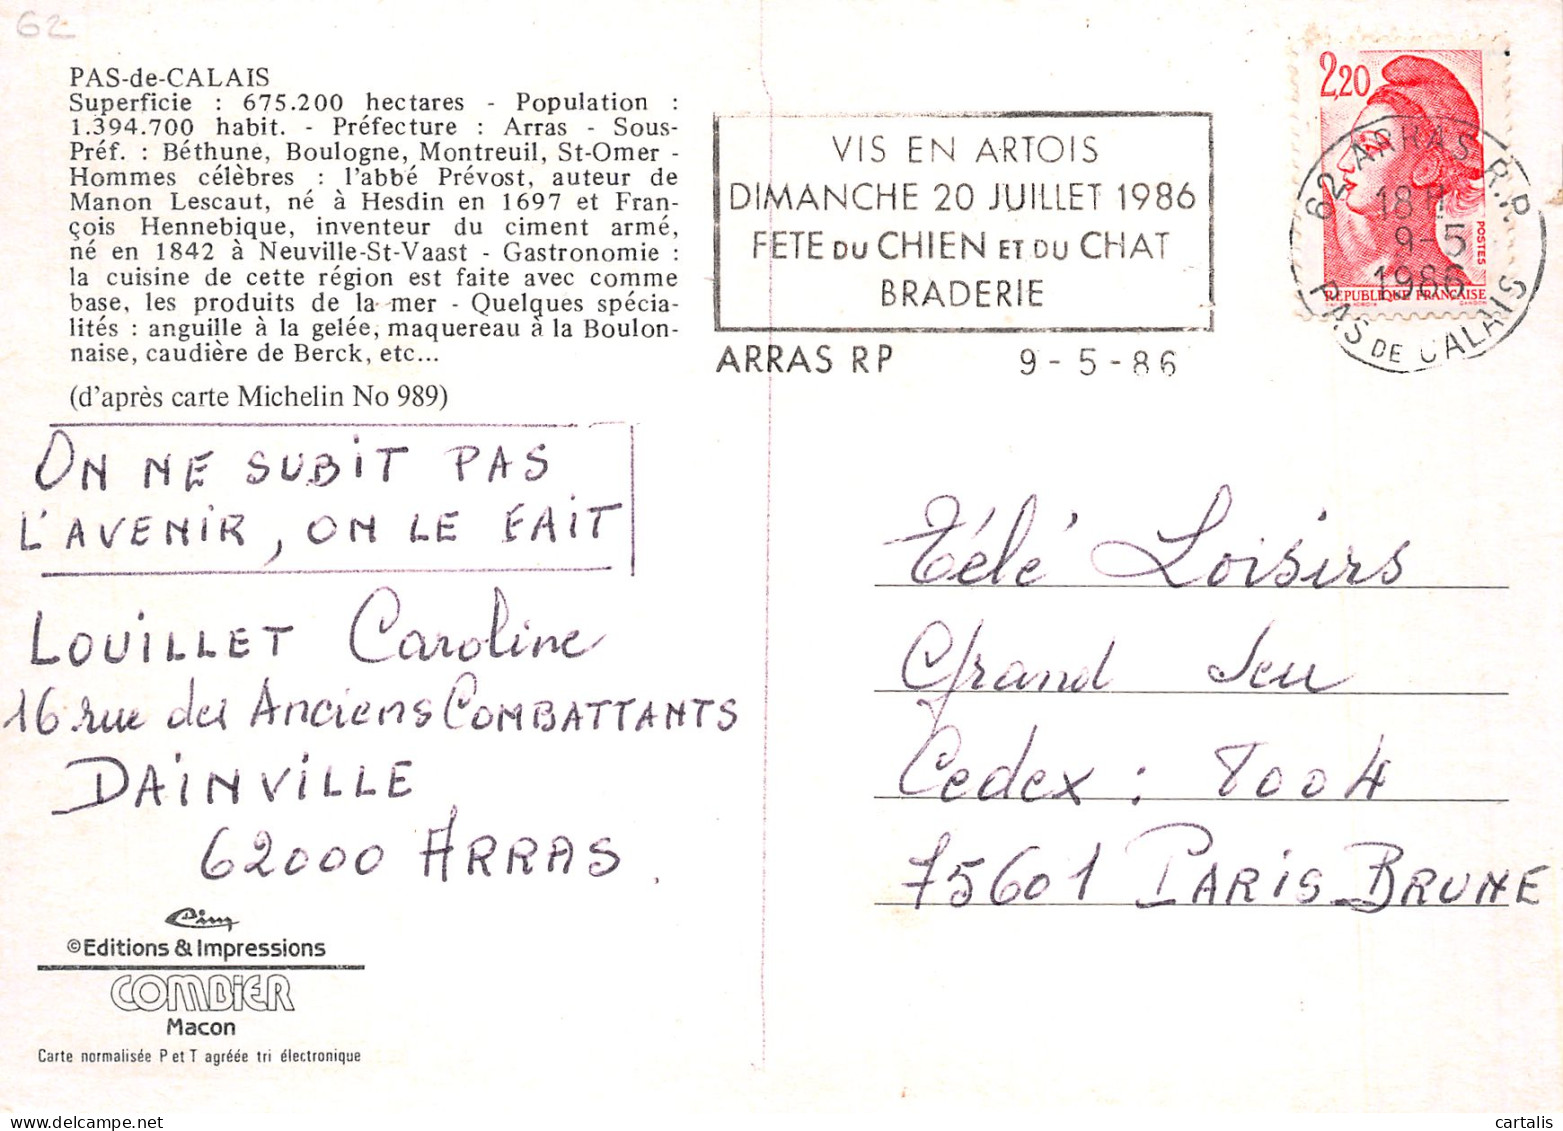 62
PAS-de-CALAIS
Superficie : 675.200 hectares - Population :
1.394.700 habit. - Préfecture : Arras - Sous-
Préf. : Béthune, Boulogne, Montreuil, St-Omer -
Hommes célèbres : l'abbé Prévost, auteur de
Manon Lescaut, né à Hesdin en 1697 et Fran-
çois Hennebique, inventeur du ciment armé,
né en 1842 à Neuville-St-Vaast - Gastronomie :
la cuisine de cette région est faite avec comme
base, les produits de la mer - Quelques spécia-
lités : anguille à la gelée, maquereau à la Boulon-
naise, caudière de Berck, etc...
(d'après carte Michelin No 989)
ON NE SUBIT PAS
L'AVENIR, ON LE FAIT
LOUILLET Caroline
16 rue des Anciens COMBATTANTS
DAINVILLE
62000 ARRAS.
Cim
©Editions & Impressions
COMBIER
Macon
Carte normalisée P et T agréée tri électronique
VIS EN ARTOIS
DIMANCHE 20 JUILLET 1986
FETE DU CHIEN ET DU CHAT
BRADERIE
ARRAS RP 9-5-86
2,20
POSTES
REPUBLIQUE FRANÇAISE
62 ARRAS R.P.
18 H
9-5
1986
PAS DE CALAIS
Télé Loisirs
Grand Jeu
Cedex : 7004
75601 PARIS BRUNE
cartalis